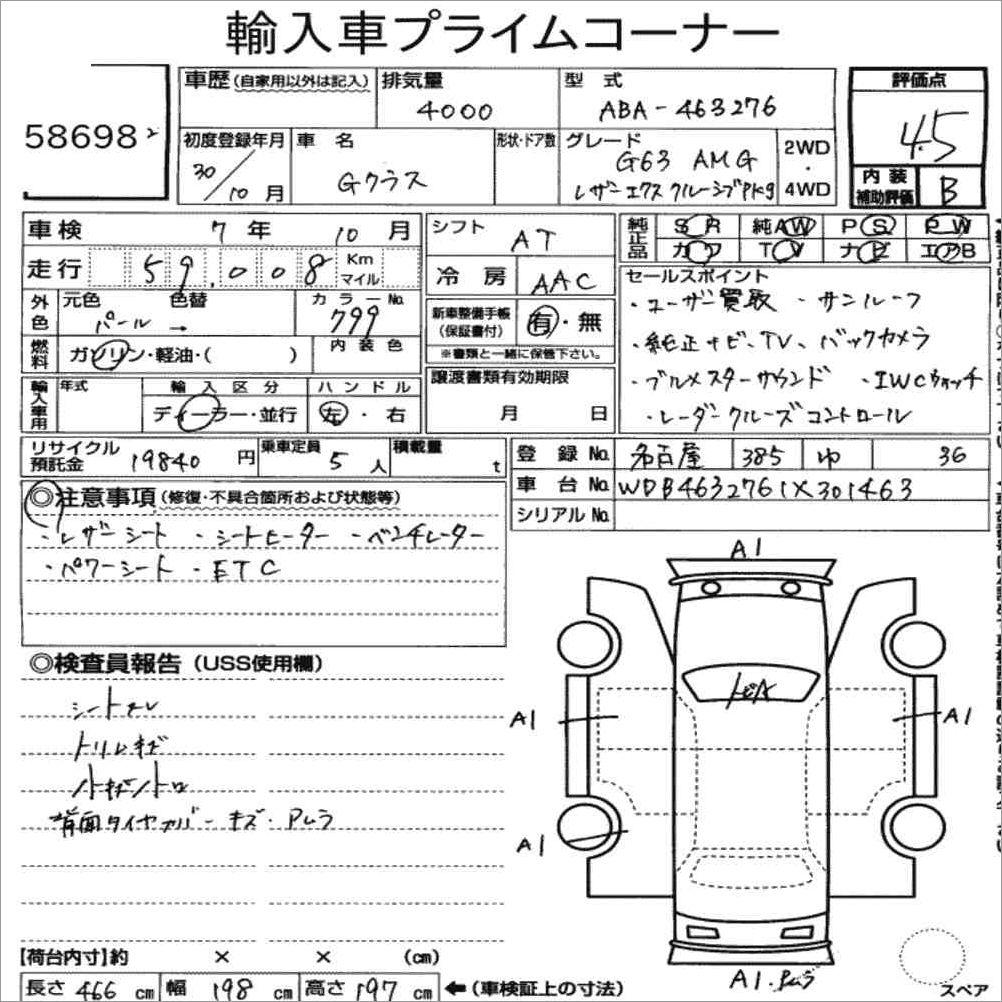 輸入車プライムコーナー
58698 2
車歴 (自家用以外は記入)
排気量 4000
型式 ABA-463276
評価点 4.5
内装補助評価 B
初度登録年月 30/10月
車名 Gクラス
形状・ドア数
グレード G63 AMG
レザーエクスクルーシブPKg
2WD・4WD
車検 7年 10月
走行 59,008 Km マイル
外色 元色 パール → 色替
カラーNo. 799
燃料 ガソリン・軽油・( )
内装色
輸入車用 年式
輸入区分 ディーラー・並行
ハンドル 左・右
シフト AT
冷房 AAC
新車整備手帳(保証書付) 有・無
※書類と一緒に保管下さい。
譲渡書類有効期限
月 日
純正品 SR 純AW PS PW
カワ TV ナビ エアB
セールスポイント
・ユーザー買取 ・サンルーフ
・純正ナビ、TV、バックカメラ
・ブルメスターサウンド ・IWCウォッチ
・レーダークルーズコントロール
リサイクル預託金 19840円
乗車定員 5人
積載量 t
登録No. 名古屋 385 ゆ 36
車台No. WDB4632761X301463
シリアルNo.
◎注意事項(修復・不具合箇所および状態等)
・レザーシート ・シートヒーター ・ベンチレーター
・パワーシート ・ETC
◎検査員報告(USS使用欄)
シートスレ
トリムキズ
背面タイヤカバーキズ・Pムラ
A1
トビA
A1
A1
A1
A1.Pムラ
【荷台内寸】約 × × (cm)
長さ 466 cm 幅 198 cm 高さ 197 cm ←(車検証上の寸法)
スペア